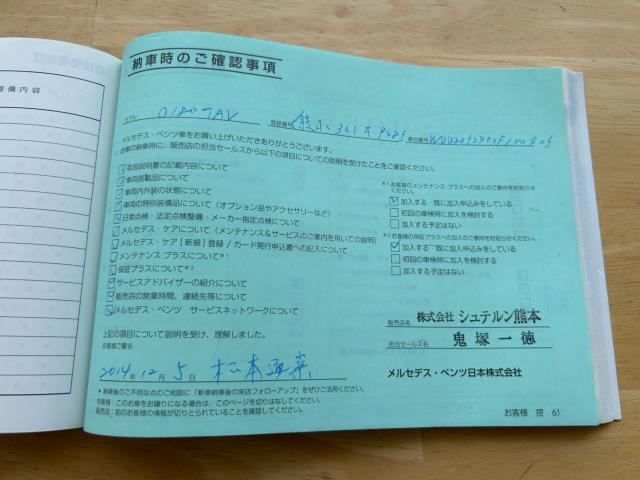 整備内容
納車時のご確認事項
モデル 0180 TAV 登録番号 熊本 301 車台番号
メルセデス・ベンツ車をお買い上げいただきありがとうございます。
お車の納車時に、販売店の担当セールスから以下の項目についての説明を受けたことをご確認ください。
取扱説明書の記載内容について
車両搭載品について
車両内外装の状態について
車両の特別装備品について（オプション品やアクセサリーなど）
日常点検・法定点検整備・メーカー指定点検について
メルセデス・ケアについて（メンテナンス&サービスのご案内を用いての説明）
メルセデス・ケア［新規］登録／カード発行申込書への記入について
メンテナンス プラスについて*¹
保証プラスについて*²
サービスアドバイザーの紹介について
販売店の営業時間、連絡先等について
メルセデス・ベンツ サービスネットワークについて
*¹ お客様のメンテナンス プラスへの加入のご意向をお知らせください。
加入する・既に加入申込みをしている
初回の車検時に加入を検討する
加入する予定はない
*² お客様の保証プラスへの加入のご意向をお知らせください。
加入する・既に加入申込みをしている
初回の車検時に加入を検討する
加入する予定はない
上記の項目について説明を受け、理解しました。
お客様ご署名
2014年 12月 5日 松本
販売店名 株式会社 シュテルン熊本
担当セールス名 鬼塚一徳
メルセデス・ベンツ日本株式会社
* 納車後のご不明な点のご相談に「新車納車後の来店フォローアップ」をぜひご活用ください。
お客様：このお車をお譲りになる場合は、このページを切りはなしてください。
販売店：前のお客様の情報が切りとられていることを確認してください。
お客様 控 61